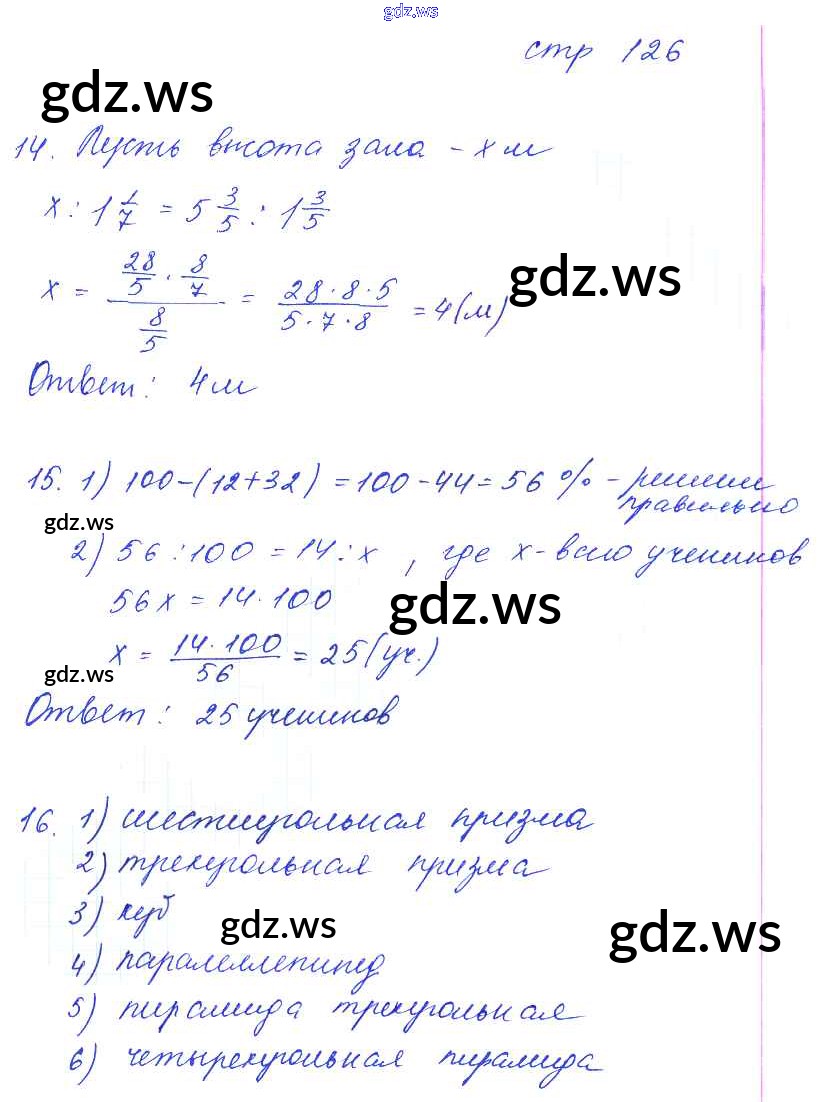 gdz.ws
стр 126
gdz.ws
14. Пусть высота зала - x м
x : 1 1/7 = 5 3/5 : 1 3/5
x = (28/5 · 8/7) / (8/5) = (28 · 8 · 5) / (5 · 7 · 8) = 4 (м)
gdz.ws
Ответ: 4 м
15. 1) 100 - (12 + 32) = 100 - 44 = 56 % - решили правильно
gdz.ws
2) 56 : 100 = 14 : x , где x - всего учеников
56x = 14 · 100
gdz.ws
x = (14 · 100) / 56 = 25 (уч.)
gdz.ws
Ответ: 25 учеников
16. 1) шестиугольная призма
2) треугольная призма
3) куб
gdz.ws
gdz.ws
4) паралеллепипед
5) пирамида треугольная
6) четырехугольная пирамида